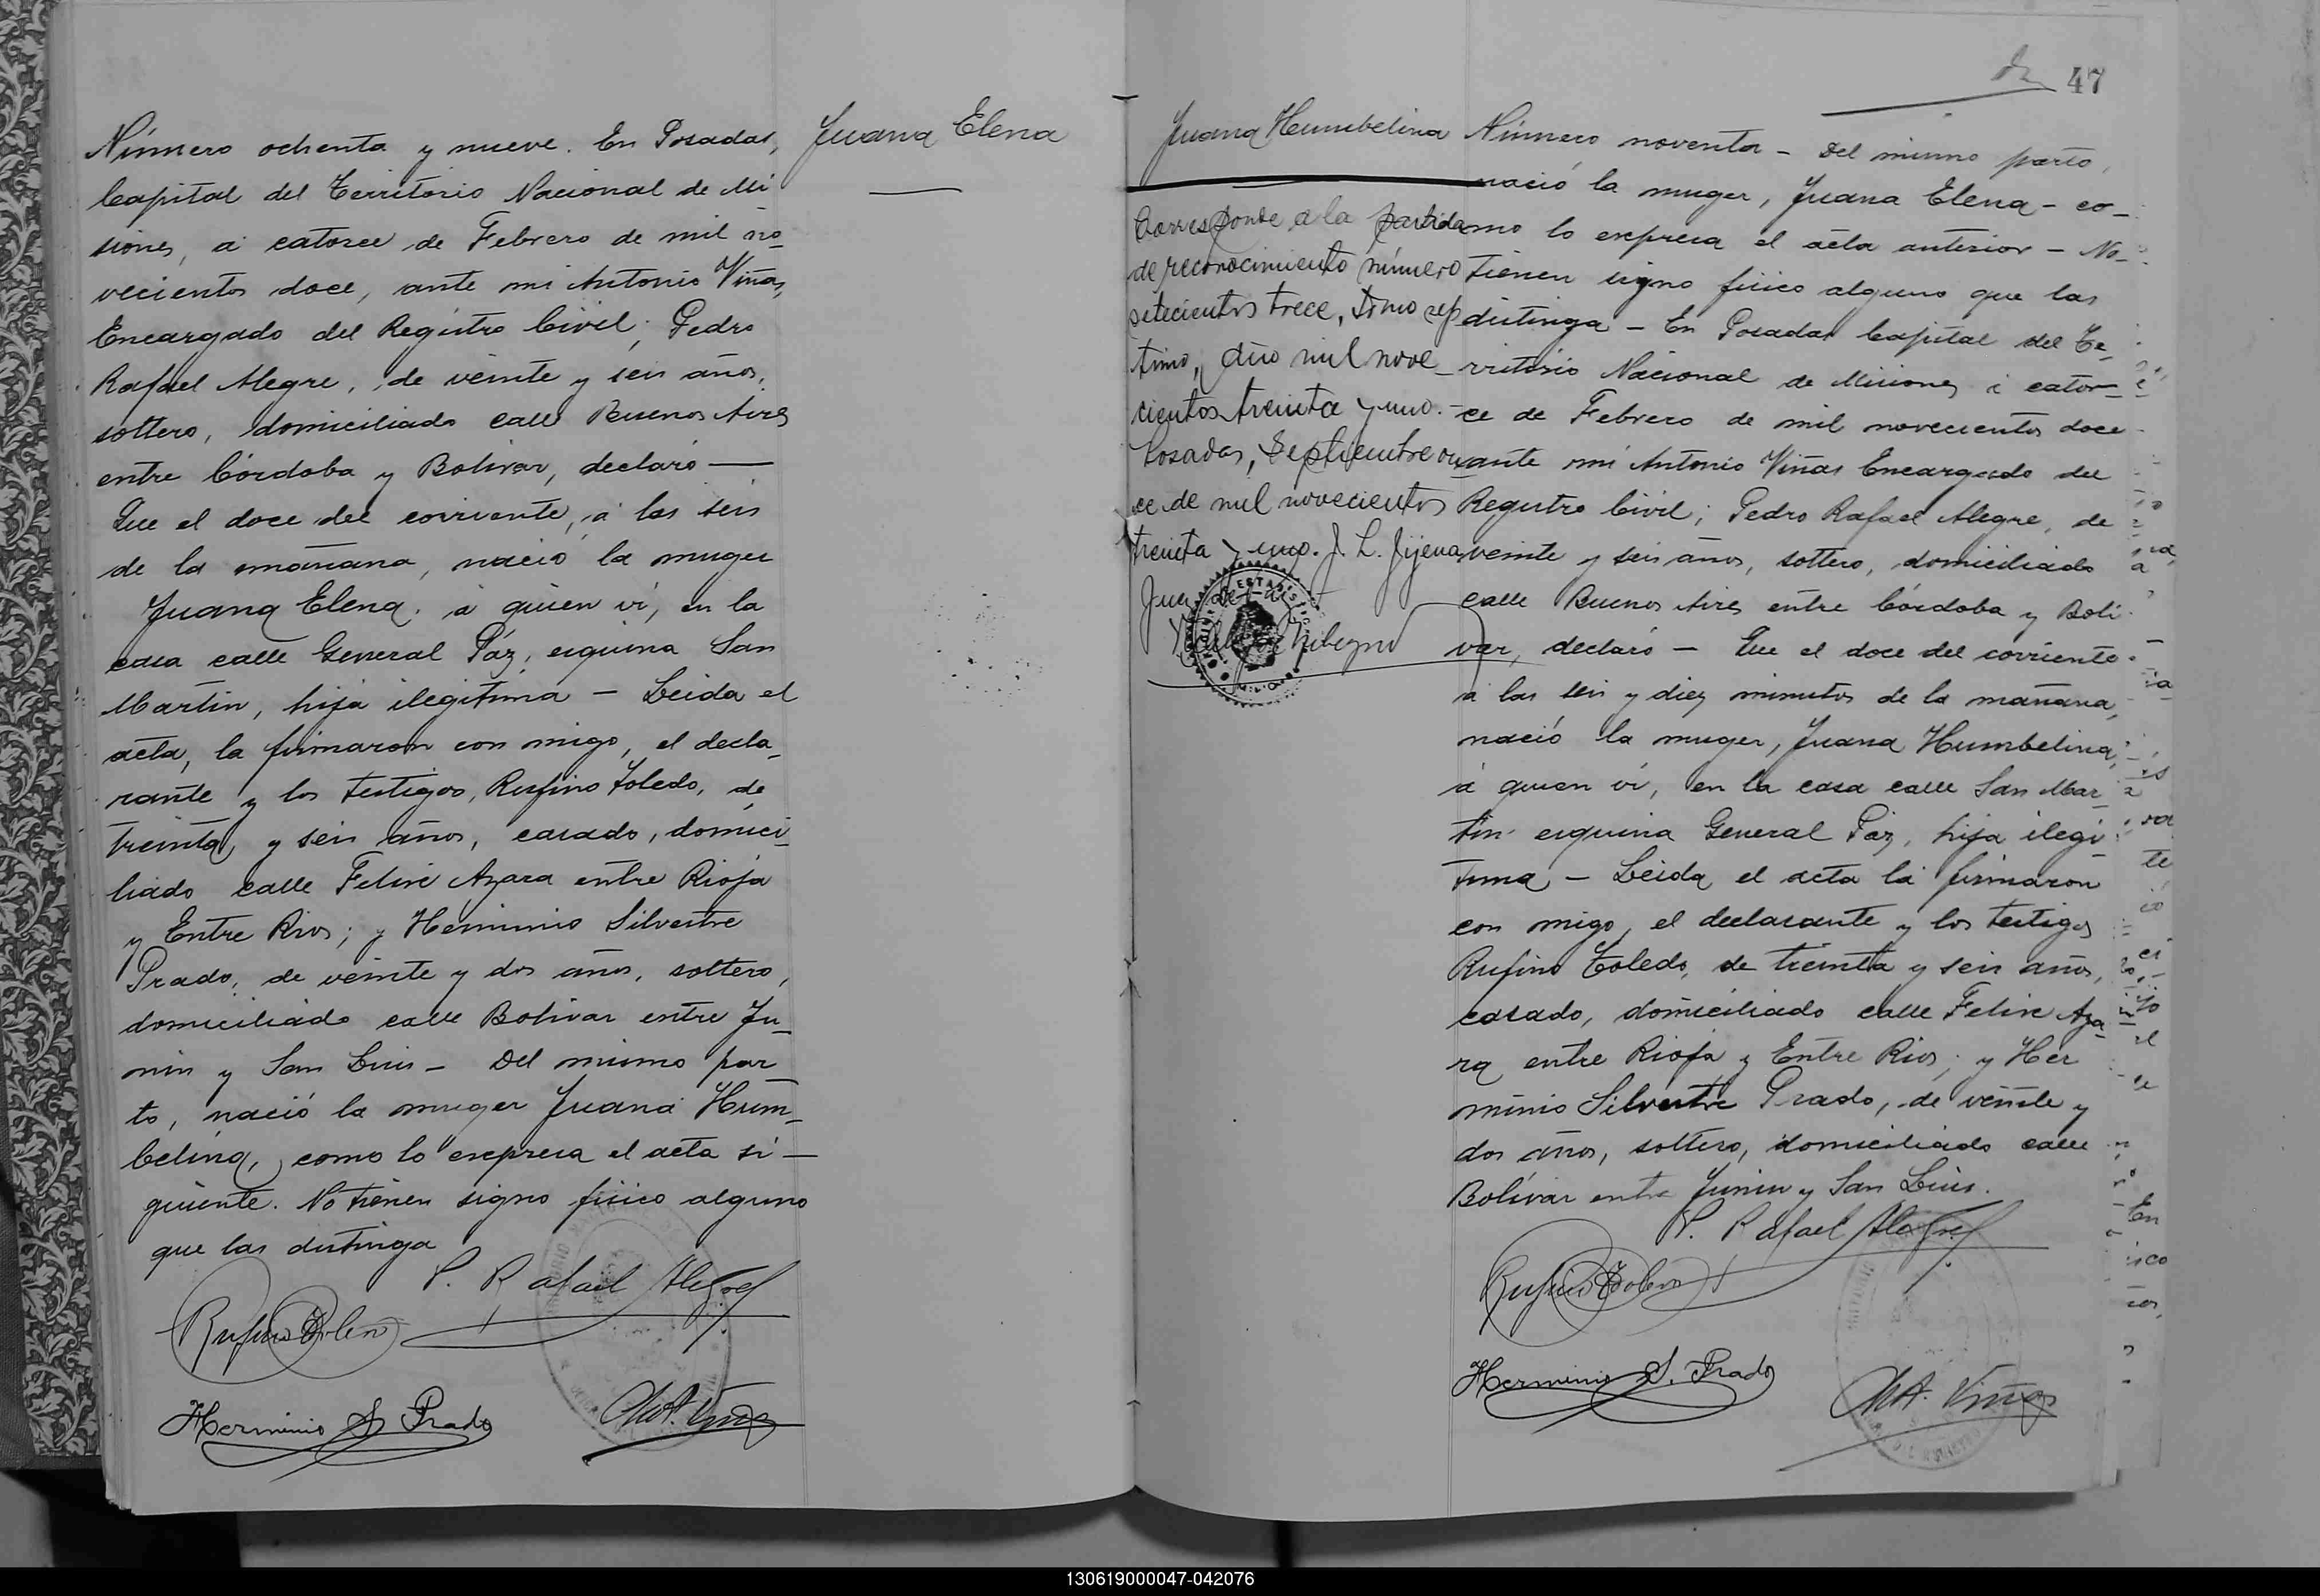 Número ochenta y nueve. En Posadas,
Capital del Territorio Nacional de Mi
siones, á catorce de Febrero de mil no_
vecientos doce, ante mi Antonio Viñas,
Encargado del Registro Civil; Pedro
Rafael Alegre, de veinte y seis años,
soltero, domiciliado calle Buenos Aires
entre Córdoba y Bolivar, declaró —
Que el doce del corriente, á las seis
de la mañana, nació la muger
Juana Elena, á quien ví, en la
casa calle General Páz, esquina San
Martin, hija ilegitima — Leida el
acta, la firmaron con migo, el decla_
rante y los testigos, Rufino Toledo, de
treinta y seis años, casado, domici_
liado calle Felix Azara entre Rioja
y Entre Rios; y Herminio Silvestre
Prado, de veinte y dos años, soltero,
domiciliado calle Bolivar entre Ju_
nin y San Luis — Del mismo par
to, nació la muger Juana Hum_
belina, como lo expresa el acta si —
guiente. No tienen signo fisico alguno
que las distinga
P. Rafael Alegre
Rufino Toledo
Herminio S. Prado
Ant. Viñas
Juana Elena
47
Juana Humbelina
Corresponde a la partida
de reconocimiento número
setecientos trece, tomo sep
timo, año mil nove_
cientos treinta y uno.-
Posadas, Septiembre on
ce de mil novecientos
treinta y uno. J. L. Jijena
Juez de Paz
Número noventa — Del mismo parto,
nació la muger, Juana Elena — co_
mo lo expresa el acta anterior — No_
tienen signo fisico alguno que las
distinga — En Posadas Capital del Te_
rritorio Nacional de Misiones á cator_
ce de Febrero de mil novecientos doce
ante mi Antonio Viñas Encargado del
Registro Civil; Pedro Rafael Alegre, de
veinte y seis años, soltero, domiciliado
calle Buenos Aires entre Córdoba y Boli
var, declaró — Que el doce del corriente
á las seis y diez minutos de la mañana,
nació la muger, Juana Humbelina,
á quien ví, en la casa calle San Mar_
tin esquina General Páz, hija ilegi_
tima — Leida el acta la firmaron
con migo, el declarante y los testigos
Rufino Toledo, de treinta y seis años,
casado, domiciliado calle Felix Aza_
ra entre Rioja y Entre Rios; y Her
minio Silvestre Prado, de veinte y
dos años, soltero, domiciliado calle
Bolívar entre Junin y San Luis.
P. Rafael Alegre
Rufino Toledo
Herminio S. Prado
Ant. Viñas
130619000047-042076